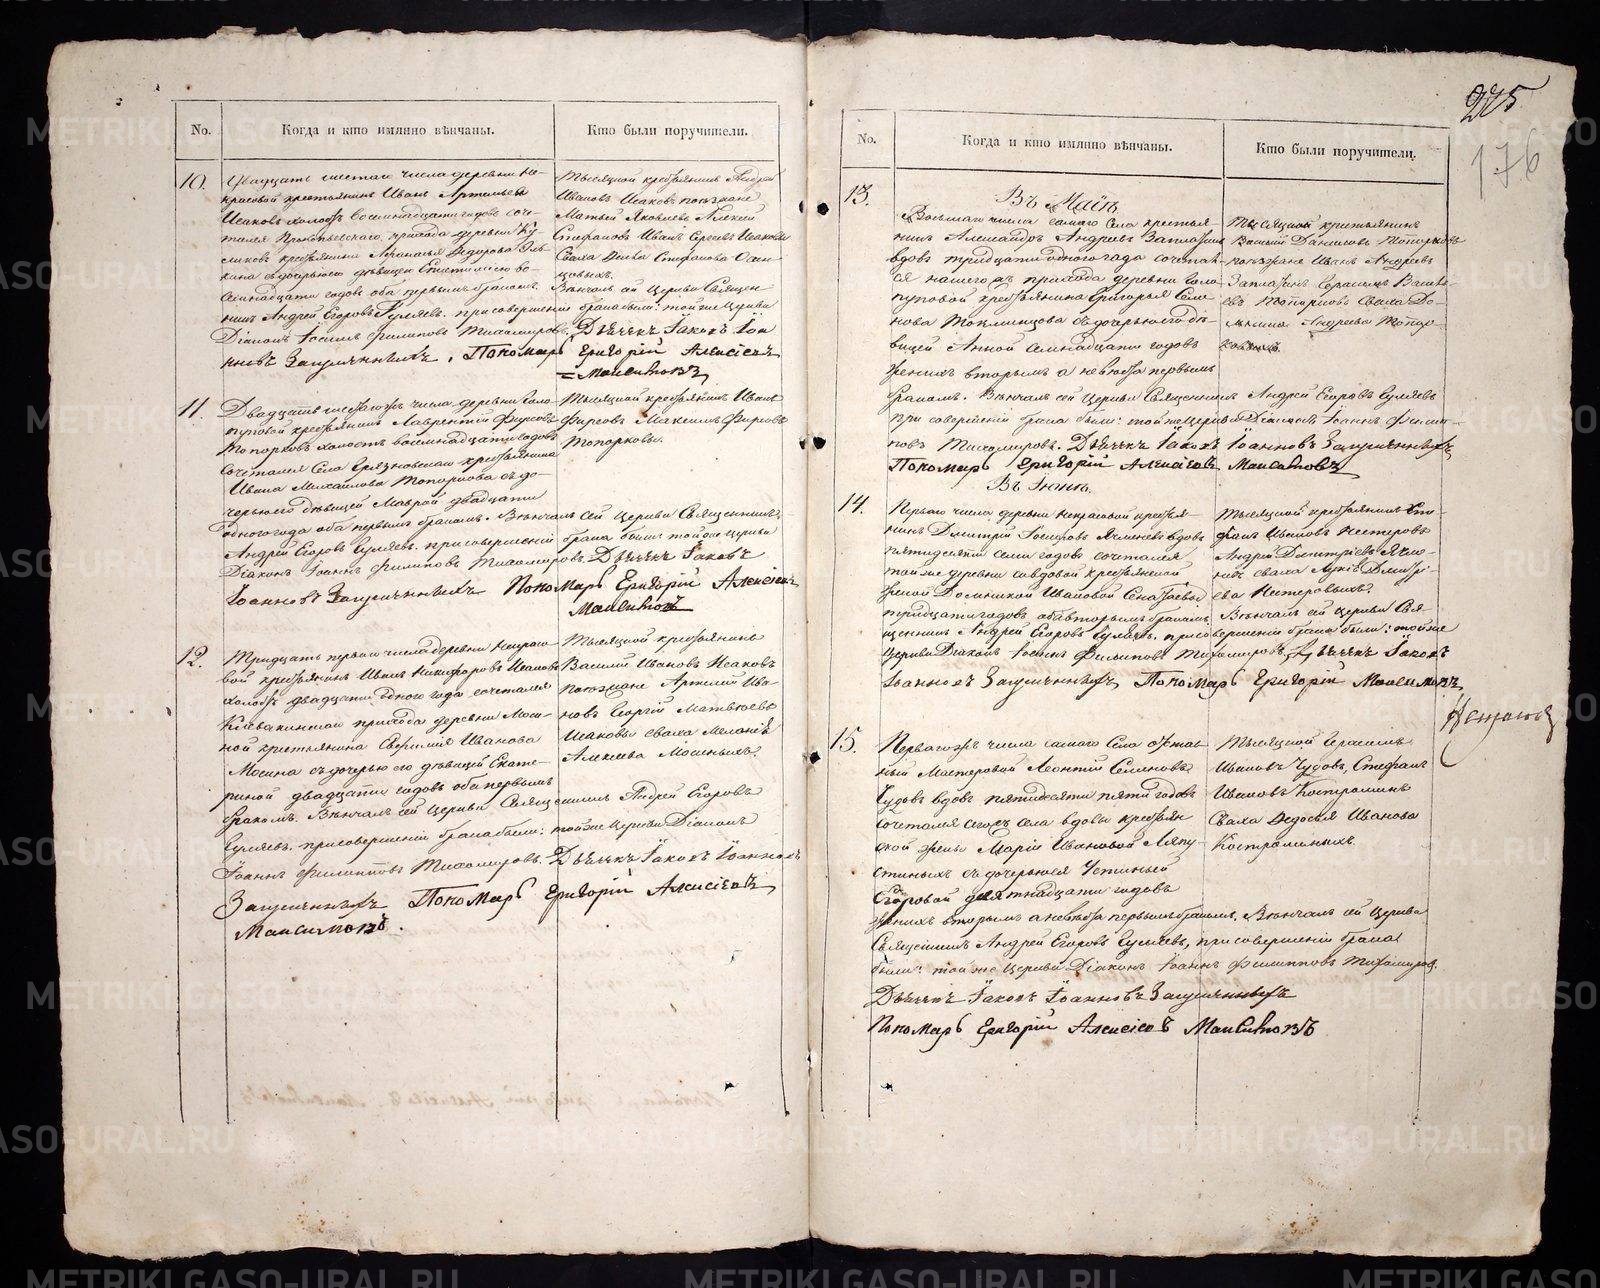 225
176
No.
Когда и кто имянно вѣнчаны.
Кто были поручители.
10.
Двадцать шестаго числа деревни Не-
красовой крестьянинъ Иванъ Артемьевъ
Исаковъ холостъ восемнадцати годовъ соче-
тался прихода деревни
крестьянина Федорова
дочерью его дѣвицей
семнадцати годовъ оба первымъ бракомъ. Вѣнчалъ сей Церкви Священ
никъ Андрей Егоровъ Гуляевъ. при совершеніи брака были: той же Церкви
Діаконъ Іоаннъ Филиповъ Тихомировъ. Дьячекъ Іаковъ Іоа
нновъ Пономарь Григорій Алексіевъ
Максимовъ
Тысяцкой крестьянинъ Андрей
Ивановъ Исаковъ поезжане
Матвей Яковлевъ Алексей
Стефановъ Иванъ Сергеевъ Исаковы
Сваха Стефанова
11.
Двадцать шестагожъ числа деревни Голо
пуповой крестьянинъ Лаврентій Фирсовъ
Топорковъ холостъ восемнадцати годовъ
сочетался Села Грязновскаго крестьянина
Ивана Михайлова Топоркова съ до-
черью его дѣвицей Маврой двадцати
одного года оба первымъ бракомъ. Вѣнчалъ сей Церкви Священникъ
Андрей Егоровъ Гуляевъ. при совершеніи брака были: той же Церкви
Діаконъ Іоаннъ Филиповъ Тихомировъ. Дьячекъ Іаковъ
Іоанновъ Пономарь Григорій Алексіевъ
Максимовъ
Тысяцкой крестьянинъ Иванъ
Фирсовъ Максимъ Фирсовъ
Топорковы.
12.
Тридцать перваго числа деревни Некрасо
вой крестьянинъ Иванъ Никифоровъ Исаковъ
холостъ двадцати одного года сочетался
Клевакинскаго прихода деревни Моси-
ной крестьянина Иванова
Мосина съ дочерью его дѣвицей Екате-
риной двадцати годовъ оба первымъ
бракомъ. Вѣнчалъ сей Церкви Священникъ Андрей Егоровъ
Гуляевъ. при совершеніи брака были: той же Церкви Діаконъ
Іоаннъ Филипповъ Тихомировъ. Дьячекъ Іаковъ Іоанновъ
Пономарь Григорій Алексіевъ
Максимовъ.
Тысяцкой крестьянинъ
Василій Ивановъ Исаковъ
поезжане Артемій Ива-
новъ Георгій Матвеевъ
Исаковы сваха Меланія
Алексеева Мосиныхъ.
No.
Когда и кто имянно вѣнчаны.
Кто были поручители.
13.
Въ Маіѣ.
Восьмаго числа самаго Села крестья
нинъ Александръ Андреевъ Заплатинъ
вдовъ тридцати одного года сочетал-
ся нашегожъ прихода деревни Голо
пуповой крестьянина Григорья Семе
нова съ дочерью его дѣ
вицей Анной семнадцати годовъ
женихъ вторымъ а невѣста первымъ
бракомъ. Вѣнчалъ сей Церкви Священникъ Андрей Егоровъ Гуляевъ
при совершеніи брака были: той же Церкви Діаконъ Іоаннъ Филип-
повъ Тихомировъ. Дьячекъ Іаковъ Іоанновъ
Пономарь Григорій Алексіевъ Максимовъ
Тысяцкой крестьянинъ
Василій Даниловъ Топорковъ
поезжане Иванъ Андреевъ
Заплатинъ Герасимъ Василь-
евъ Топорковъ Сваха До-
мнина Андреева Топор-
ковыхъ.
Въ Іюнѣ.
14.
Перваго числа деревни Некрасовой крестья-
нинъ Димитрій вдовъ
пятидесяти семи годовъ сочетался
той же деревни со вдовой крестьянской
женой Домникой Ивановой
тридцати годовъ оба вторымъ бракомъ. Вѣнчалъ сей Церкви Свя-
щенникъ Андрей Егоровъ Гуляевъ. при совершеніи брака были: той же
Церкви Діаконъ Іоаннъ Филиповъ Тихомировъ. Дьячекъ Іаковъ
Іоанновъ Пономарь Григорій Максимовъ
Тысяцкой крестьянинъ Сте
фанъ Ивановъ Нестеровъ
Андрей Дмитріевъ
сваха Дмитрі-
ева Нестеровыхъ.
15.
Перваго жъ числа самаго Села отстав
ный Мастеровой Леонтій Семеновъ
Чудовъ вдовъ пятидесяти пяти годовъ
сочетался сегожъ села вдовы крестьян
ской жены Маріи Ивановой Ляпу-
стиныхъ съ дочерью ея Устиньей
Егоровой девятнадцати годовъ
женихъ вторымъ а невѣста первымъ бракомъ. Вѣнчалъ сей Церкви
Священникъ Андрей Егоровъ Гуляевъ, при совершеніи брака
были: той же Церкви Діаконъ Іоаннъ Филипповъ Тихомировъ.
Дьячекъ Іаковъ Іоанновъ
Пономарь Григорій Алексіевъ Максимовъ
Тысяцкой Герасимъ
Ивановъ Чудовъ, Стефанъ
Ивановъ Костроминъ
Сваха Федосья Иванова
Костроминыхъ.
METRIKI.GASO-URAL.RU